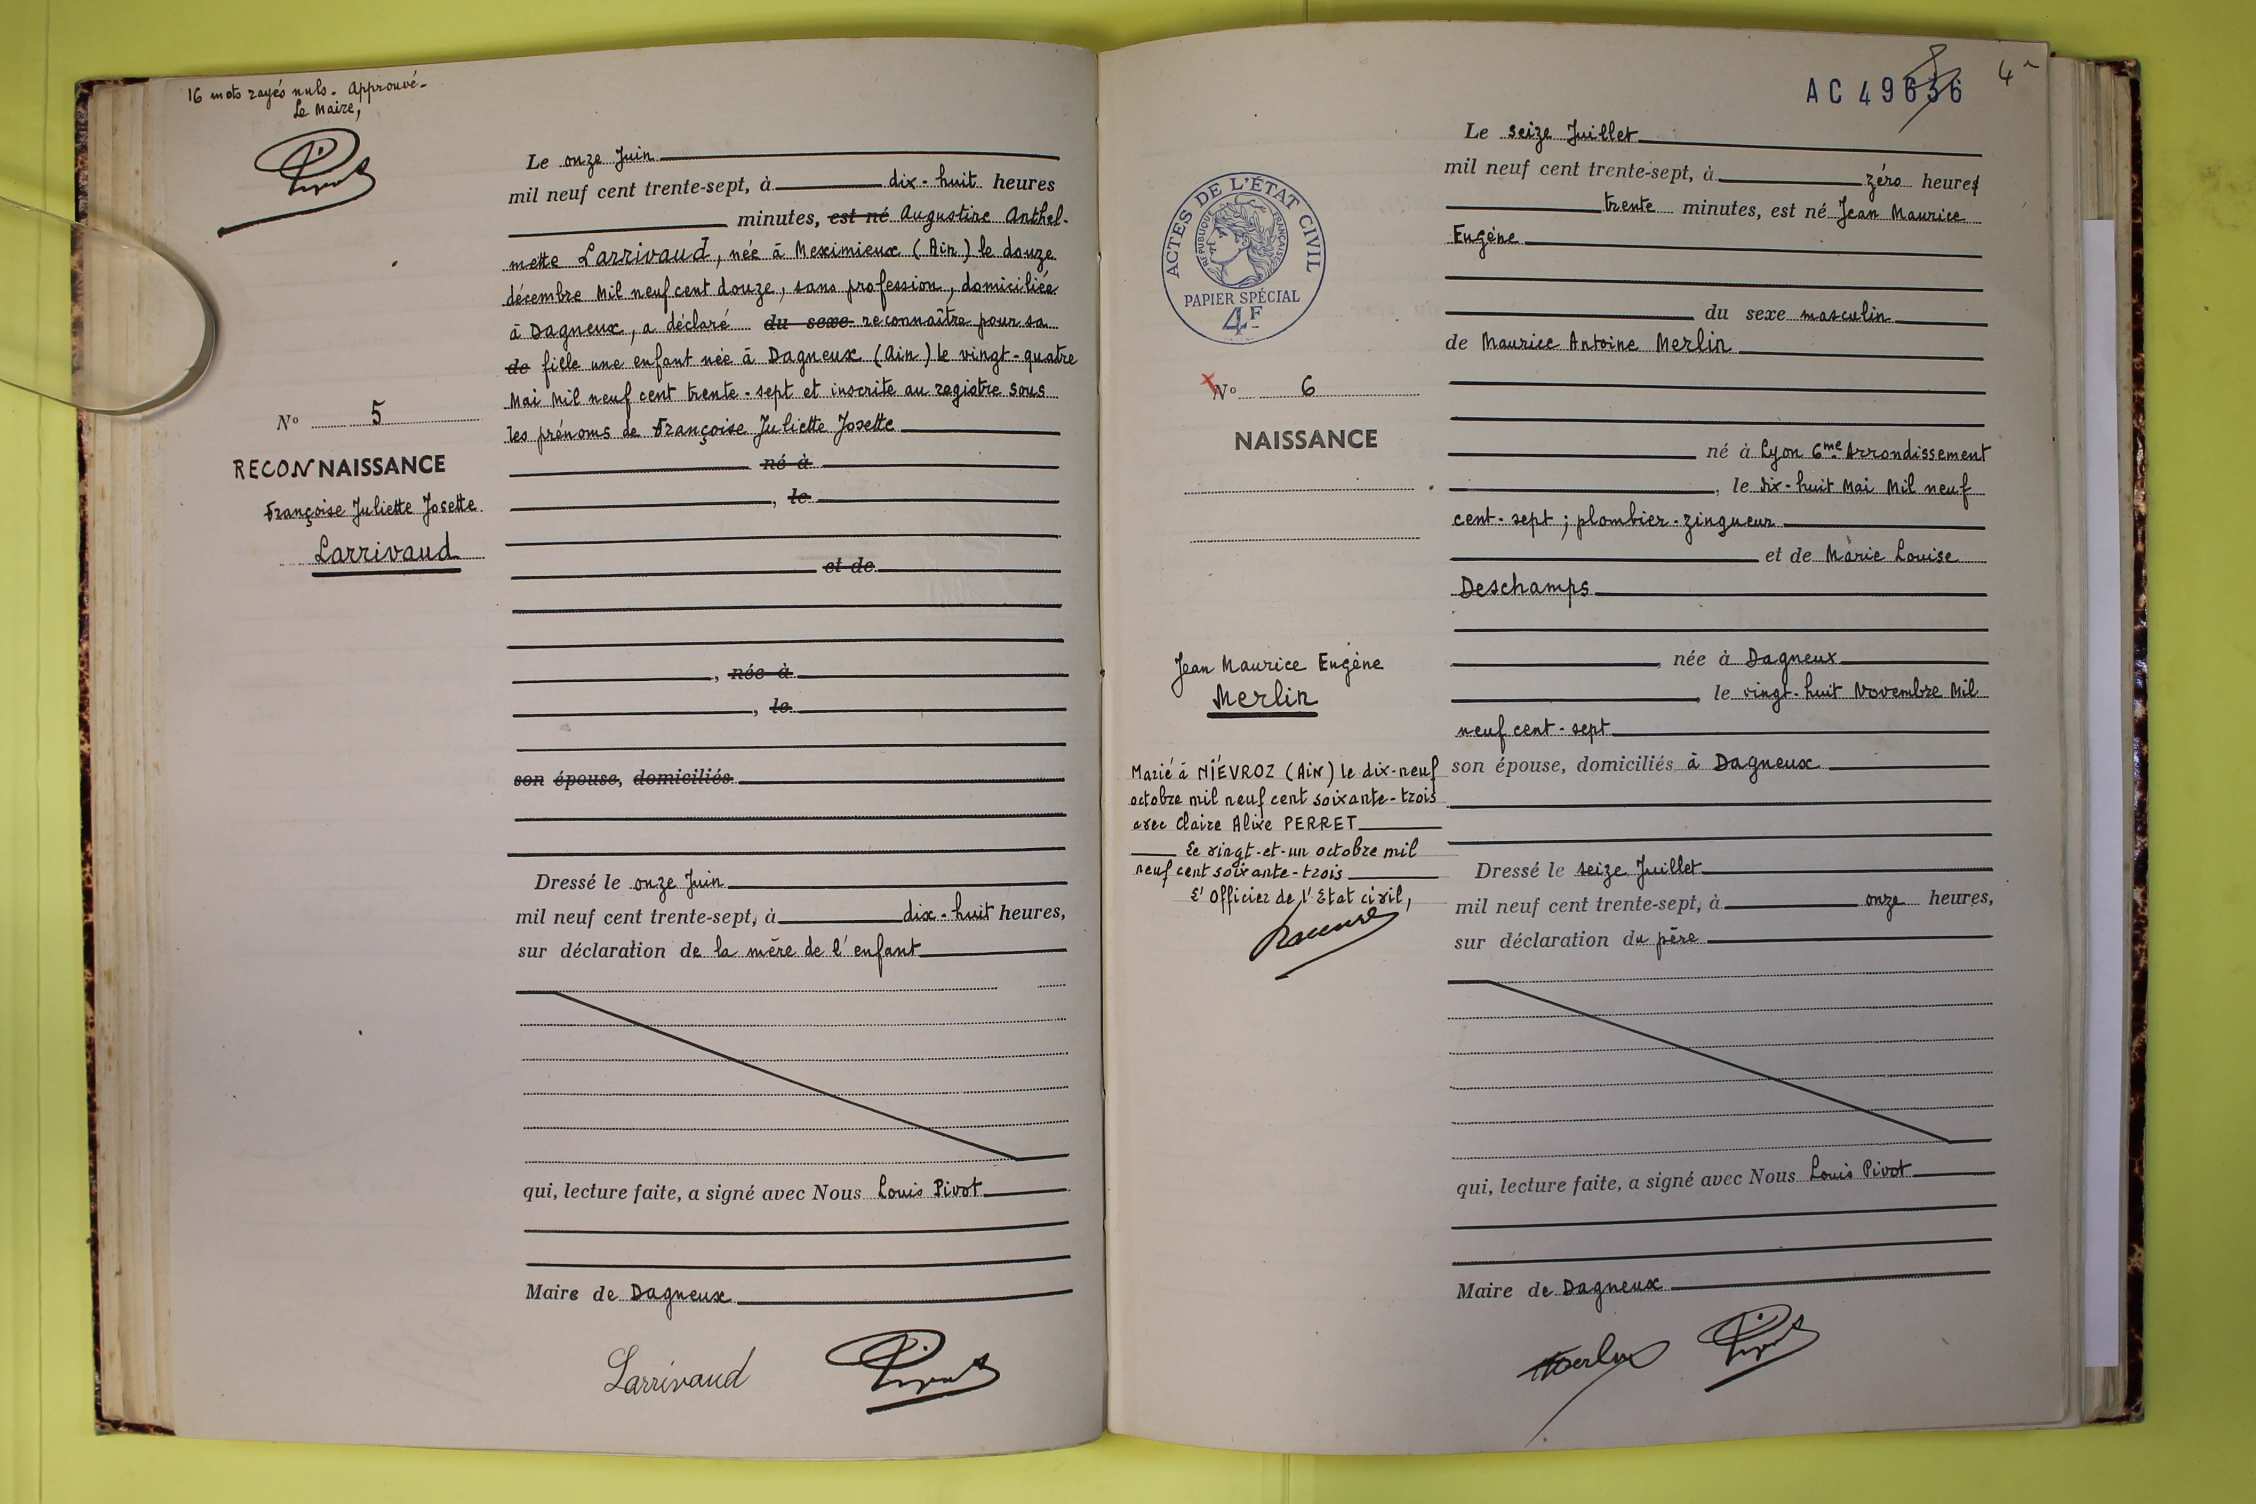 16 mots rayés nuls. Approuvé-
Le Maire,
Pivot
N° 5
RECONNAISSANCE
Françoise Juliette Josette
Larrivaud
Le onze Juin
mil neuf cent trente-sept, à dix-huit heures
minutes, est né Augustine Anthel-
mette Larrivaud, née à Meximieux (Ain) le douze
décembre Mil neuf cent douze, sans profession, domiciliée
à Dagneux, a déclaré du sexe reconnaître pour sa
de fille une enfant née à Dagneux (Ain) le vingt-quatre
Mai Mil neuf cent trente-sept et inscrite au registre sous
les prénoms de Françoise Juliette Josette
né à
, le
et de
, née à
, le
son épouse, domiciliés
Dressé le onze Juin
mil neuf cent trente-sept, à dix-huit heures,
sur déclaration de la mère de l'enfant
qui, lecture faite, a signé avec Nous Louis Pivot
Maire de Dagneux
Larrivaud Pivot
AC 49636
4
ACTES DE L'ÉTAT CIVIL
RÉPUBLIQUE FRANÇAISE
PAPIER SPÉCIAL
4F
N° 6
NAISSANCE
Jean Maurice Eugène
Merlin
Marié à NIÉVROZ (Ain) le dix-neuf
octobre mil neuf cent soixante-trois
avec Claire Alixe PERRET
Le vingt-et-un octobre mil
neuf cent soixante-trois
L'Officier de l'Etat civil,
Le seize Juillet
mil neuf cent trente-sept, à zéro heures
trente minutes, est né Jean Maurice
Eugène
du sexe masculin
de Maurice Antoine Merlin
né à Lyon 6me Arrondissement
, le dix-huit Mai Mil neuf
cent-sept ; plombier-zingueur
et de Marie Louise
Deschamps
, née à Dagneux
, le vingt-huit Novembre Mil
neuf cent-sept
son épouse, domiciliés à Dagneux
Dressé le seize Juillet
mil neuf cent trente-sept, à onze heures,
sur déclaration du père
qui, lecture faite, a signé avec Nous Louis Pivot
Maire de Dagneux
Merlin Pivot